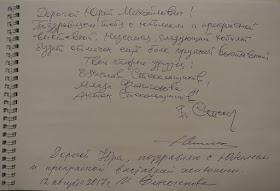 Дорогой Юрий Михайлович!
Поздравляем тебя с юбилеем и прекрасной
выставкой. Надеемся, следующий юбилей
будет отмечен ещё более крупной выставкой
Твои старые друзья:
Вячеслав Стекольщиков,
Антон Стекольщиков
Дорогой Юра, поздравляю с юбилеем
и прекрасной выставкой живописи.
12 2017 г.